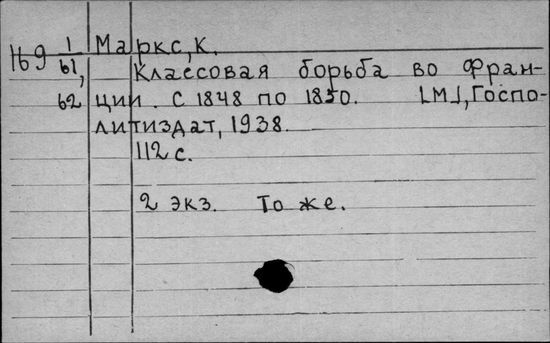 Маркс, К.
Ю9 1/61, Классовая борьба во Фран-
62 ции. С 1848 по 1850. [М], Госпо-
литиздат, 1938.
112 с.
2 экз. То же.